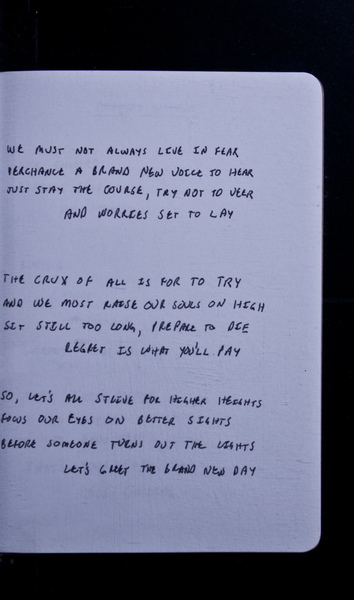 WE MUST NOT ALWAYS LIVE IN FEAR
PERCHANCE A BRAND NEW VOICE TO HEAR
JUST STAY THE COURSE, TRY NOT TO VEER
AND WORRIES SET TO LAY
THE CRUX OF ALL IS FOR TO TRY
AND WE MOST RAISE OUR SOULS ON HIGH
SIT STILL TOO LONG, PREPARE TO DIE
REGRET IS WHAT YOU'LL PAY
SO, LET'S ALL STRIVE FOR HIGHER HEIGHTS
FOCUS OUR EYES ON BETTER SIGHTS
BEFORE SOMEONE TURNS OUT THE LIGHTS
LET'S GREET THE BRAND NEW DAY